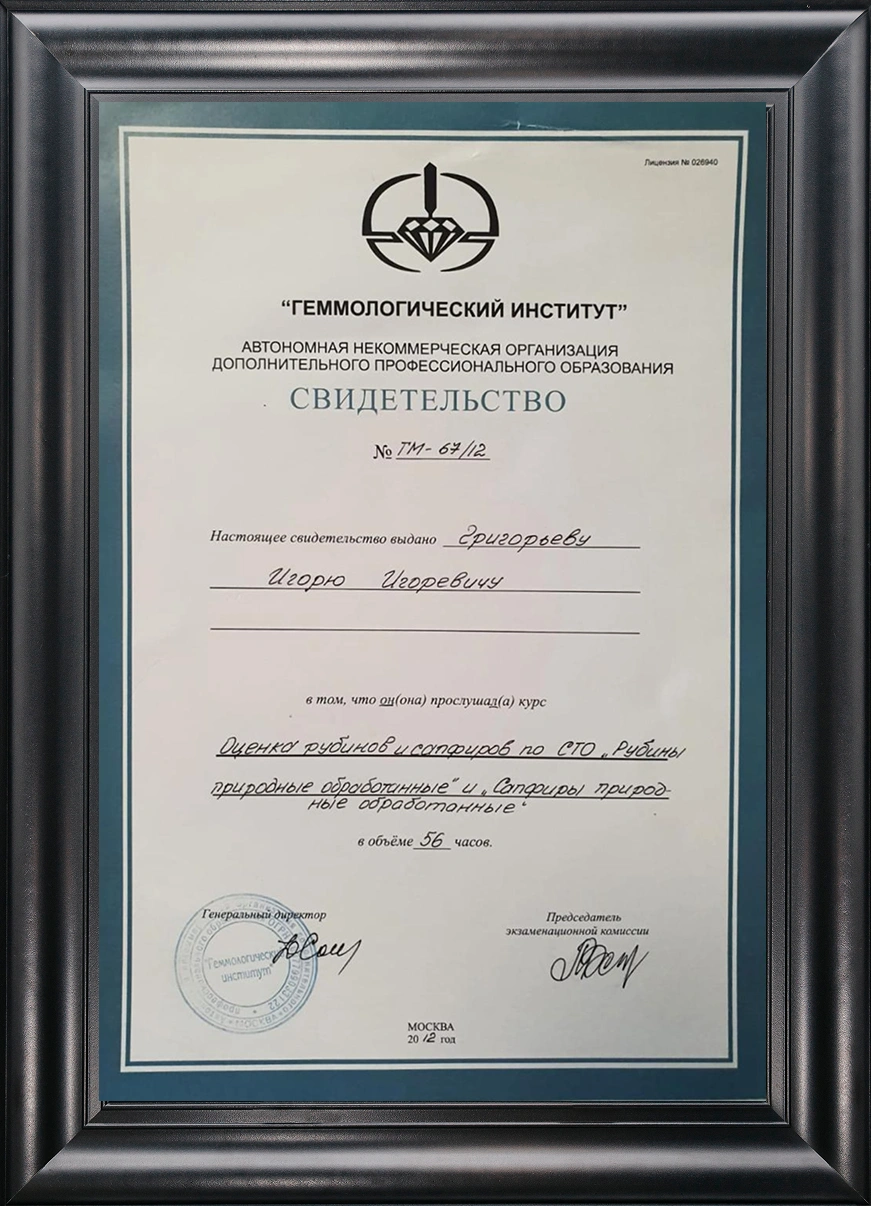 Лицензия № 026940
“ГЕММОЛОГИЧЕСКИЙ ИНСТИТУТ”
АВТОНОМНАЯ НЕКОММЕРЧЕСКАЯ ОРГАНИЗАЦИЯ
ДОПОЛНИТЕЛЬНОГО ПРОФЕССИОНАЛЬНОГО ОБРАЗОВАНИЯ
СВИДЕТЕЛЬСТВО
№ ТМ- 67/12
Настоящее свидетельство выдано Григорьеву
Игорю Игоревичу
в том, что он(она) прослушал(а) курс
Оценка рубинов и сапфиров по СТО „Рубины
природные обработанные“ и „Сапфиры природ-
ные обработанные“
в объёме 56 часов.
Генеральный директор
Председатель
экзаменационной комиссии
"Геммологический
институт"
МОСКВА
20 12 год